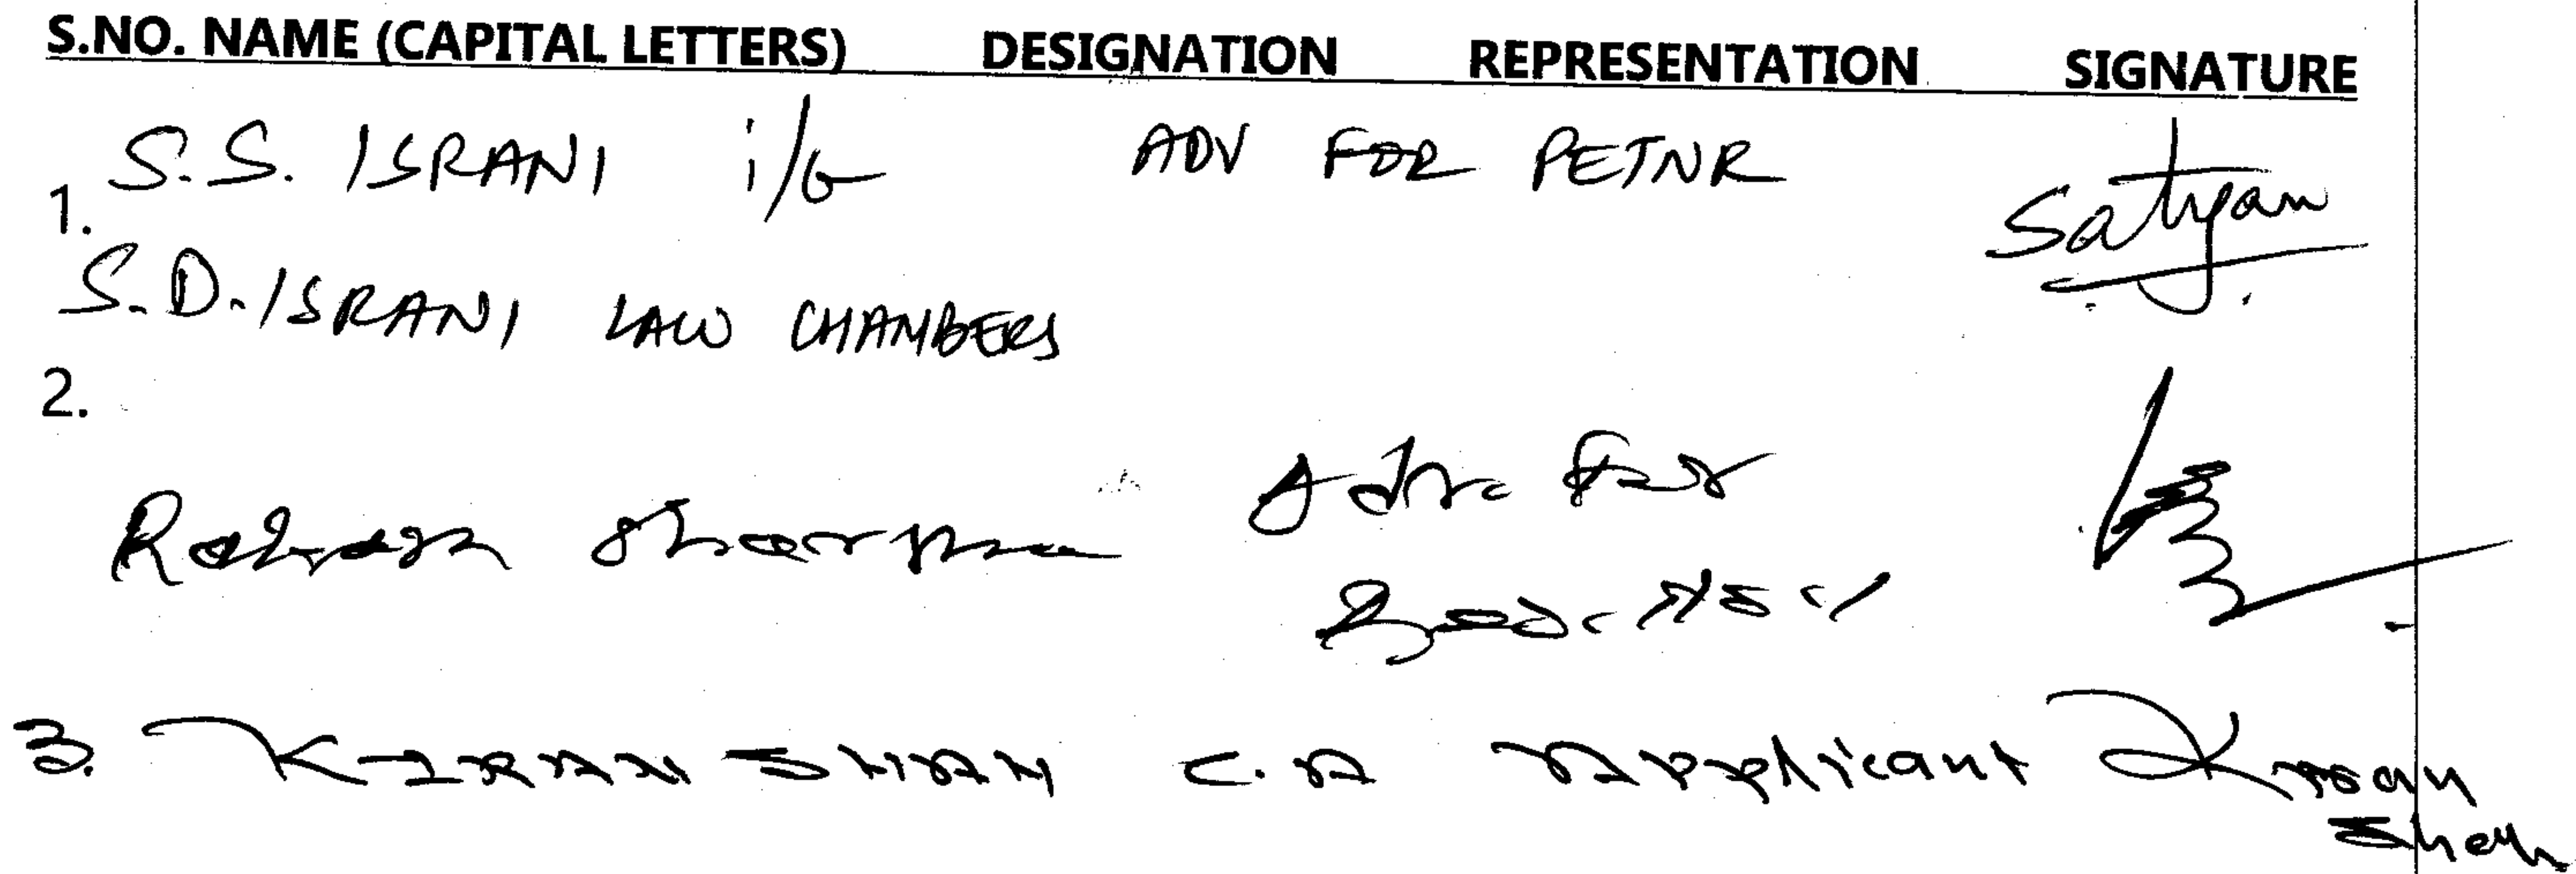 S.NO. NAME (CAPITAL LETTERS) DESIGNATION REPRESENTATION SIGNATURE
1. S.S. ISRANI i/b ADV FOR PETNR Satyan
S.D. ISRANI LAW CHAMBERS
2.
Adv. For
Sharma
3. KIRAN SHAH C.A Applicant Kiran
Shah